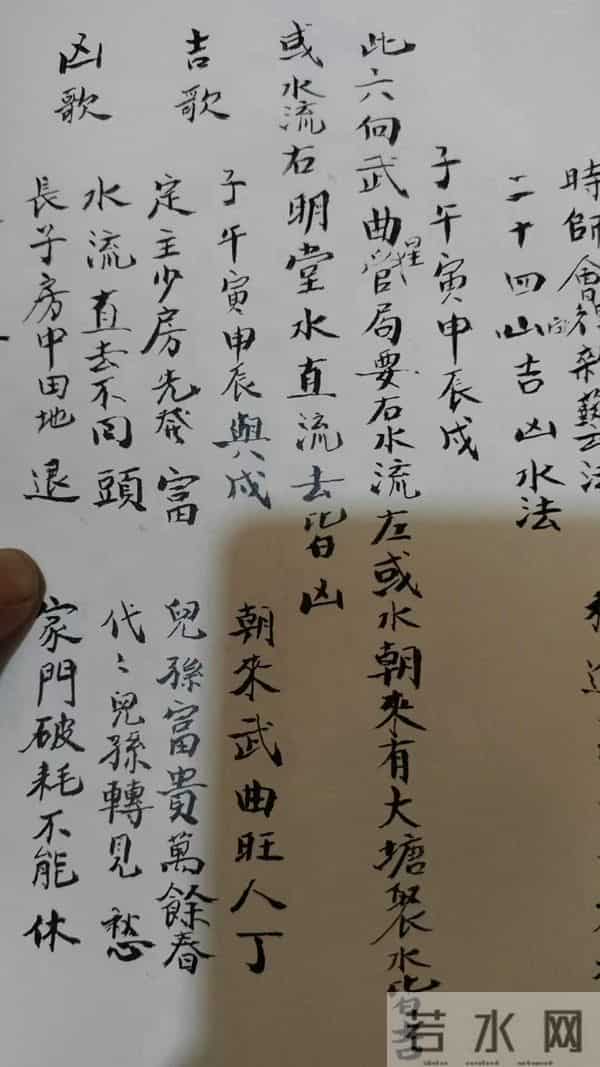 時師會得新
二十四山吉凶水法
子午寅申辰戌
此六向武曲星管局要右水流左或水朝來有大塘聚水皆吉
或水流右明堂水直流去皆凶
吉歌
子午寅申辰與戌 朝來武曲旺人丁
定主少房先發富 兒孫富貴萬餘春
凶歌
水流直去不回頭 代〻兒孫轉見愁
長子房中田地退 家門破耗不能休
若水网